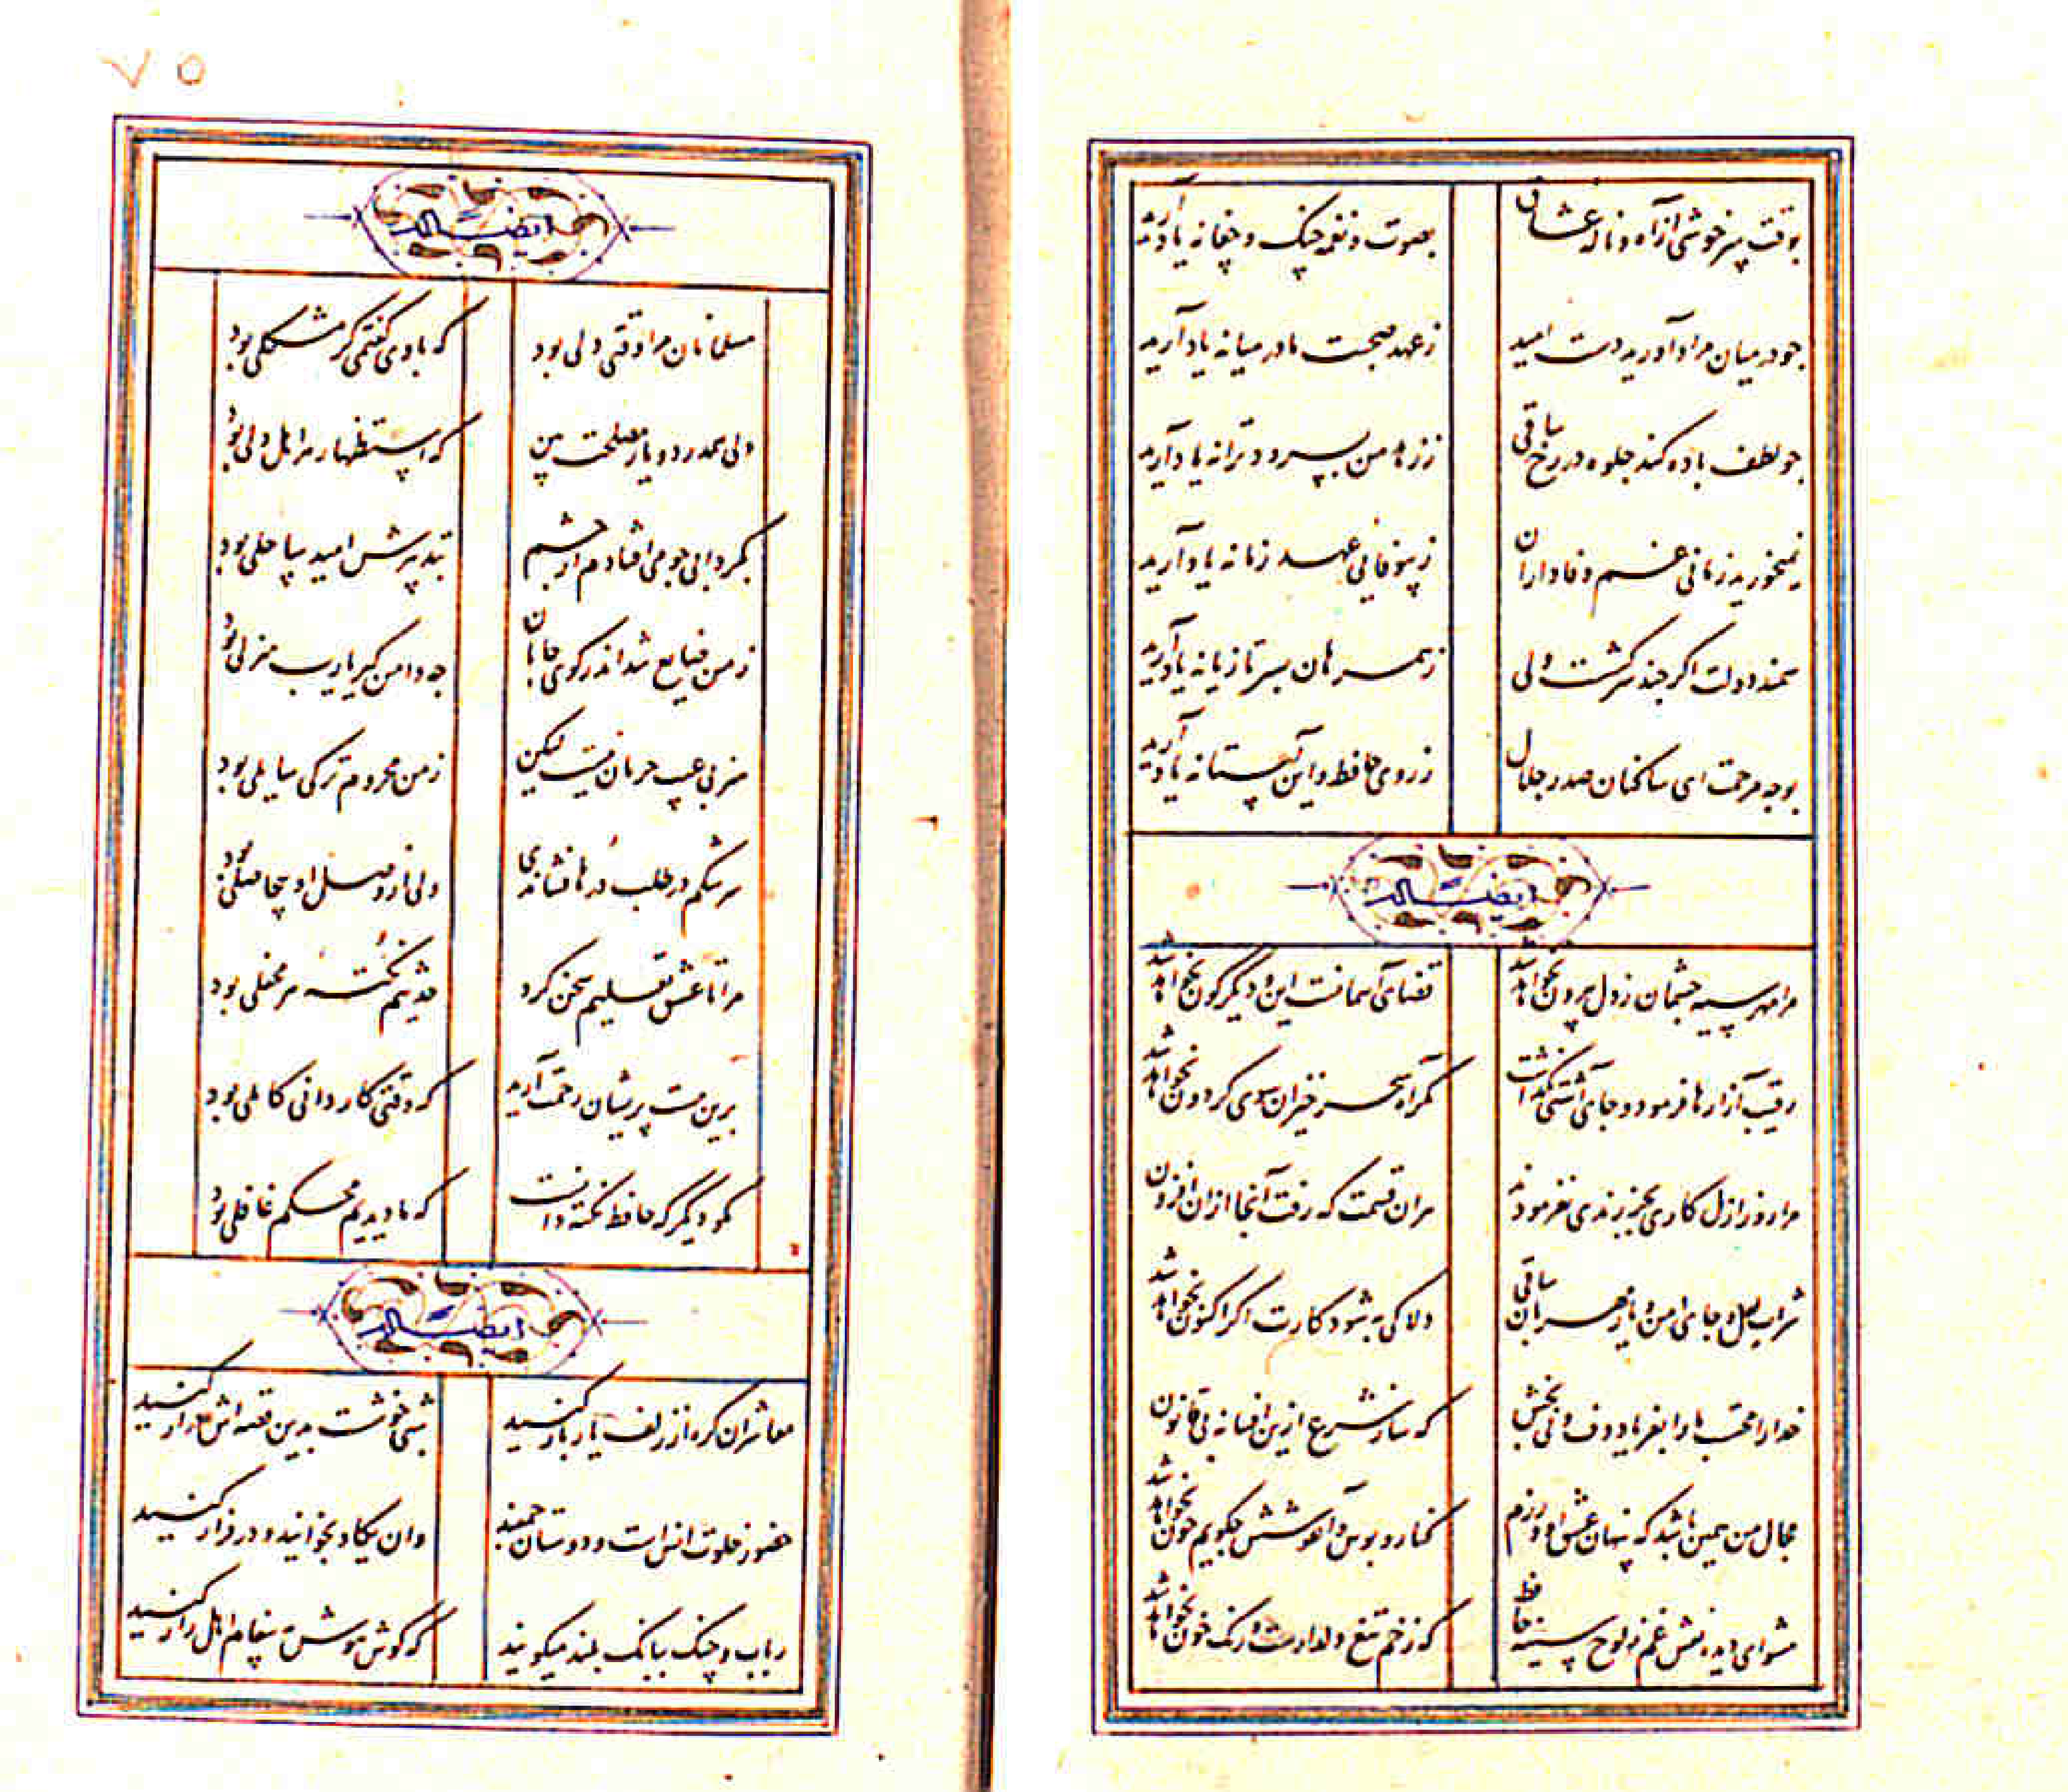 بوقت سرخوشی از آه و ناله عشاق بصوت و نغمه چنک و چغانه یاد آرید
جو در میان مراد آورید دست امید ز عهد صحبت ما در میانه یاد آرید
جو لطف باده کند جلوه در رخ ساقی ز زهاد من بسرود و ترانه یاد آرید
نمیخورید زمانی غم وفاداران ز بیوفایی عهد زمانه یاد آرید
سمند دولت اکر جند سرکشست ولی ز همرهان بسر تازیانه یاد آرید
بوجه مرحمت ای ساکنان صدر جلال ز روی حافظ و این آستانه یاد آرید
ایضاله
مرا مهر سیه جشمان ز دل بیرون نخواهد شد قضای آسمانست این و دیکرکون نخواهد شد
رقیب آزارها فرمود و جای آشتی نکذاشت مکر آه سحرخیزان سوی کردون نخواهد شد
مرا روز ازل کاری بجز رندی نفرمودند مران قسمت که رفت آنجا ازان افزون
شراب لعل و جای امن و یار مهربان ساقی دلا کی به شود کارت اکر اکنون نخواهد شد
خدا را محتسب ما را بفریاد دف و نی بخش که ساز شرع ازین افسانه بی قانون
مجال من همین باشد که پنهان عشق او ورزم کنار و بوس و آغوشش جکویم جون نخواهد شد
مشوای دیده نقش غم ز لوح سینه حافظ که زخم تیغ دلدارست و رنک خون نخواهد شد
۷۵
ایضاله
مسلمانان مرا وقتی دلی بود که با وی کفتمی کر مشکلی بود
دلی همدرد و یار مصلحت بین که استظهار مر اهل دلی بود
بکردابی جو می افتادم از جشم بتدبیرش امید ساحلی بود
ز من ضایع شد اندر کوی جانان جه دامن کیر یا رب منزلی بود
هنر بی عیب حرمان نیست لیکن ز من محروم تر کی سایلی بود
سرشکم در طلب درها فشاندی ولی از وصل او بیحاصلی بود
مرا تا عشق تعلیم سخن کرد حدیثم نکته هر محفلی بود
برین مست پریشان رحمت آرید که وقتی کاردانی کاملی بود
مکو دیکر که حافظ نکته دانست که ما دیدیم محکم غافلی بود
ایضاله
معاشران کره از زلف یار باز کنید شبی خوشست بدین قصه اش دراز کنید
حضور خلوت انس است و دوستان جمعند وان یکاد بخوانید و در فراز کنید
رباب و چنک ببانک بلند میکویند که کوش هوش به پیغام اهل راز کنید